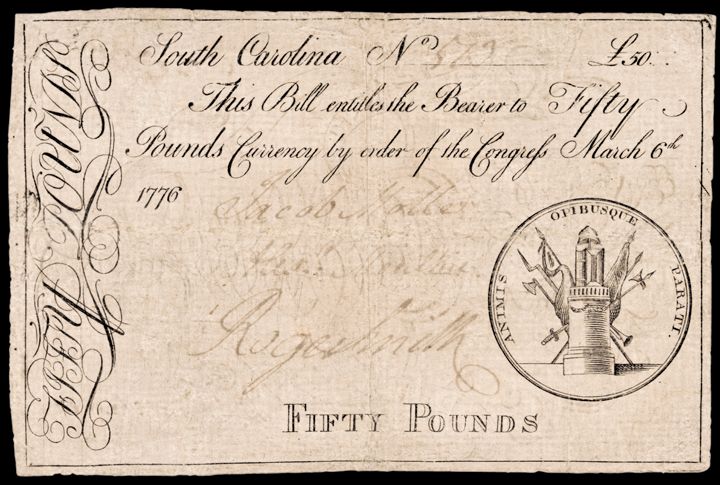 South Carolina Nº 573 £50::
This Bill entitles the Bearer to Fifty
Pounds Currency by order of the Congress March 6th
1776
Jacob
Roger Smith
ANIMIS OPIBUSQUE PARATI.
FIFTY POUNDS
FIFTY POUNDS